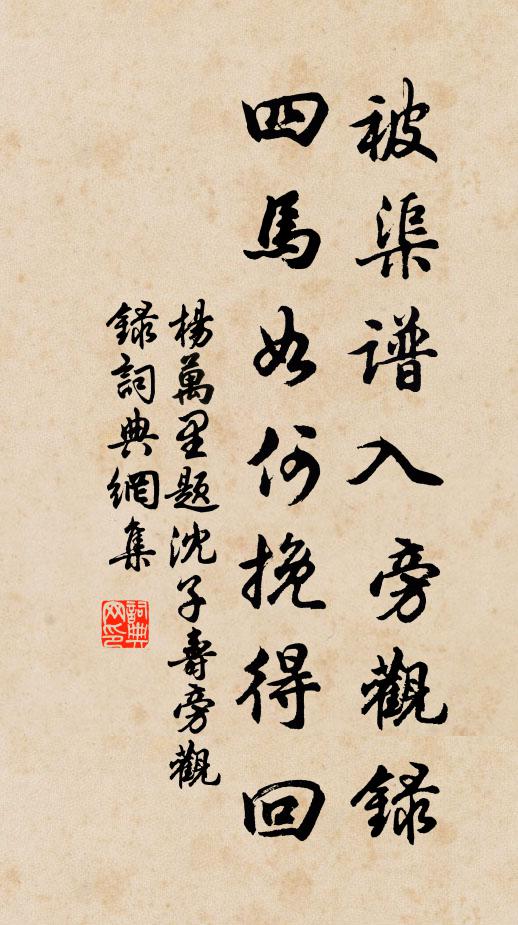 被渠谱入旁觀録
四馬如何挽得回
楊萬里題沈子壽旁觀
録詞典網集
詞典網印